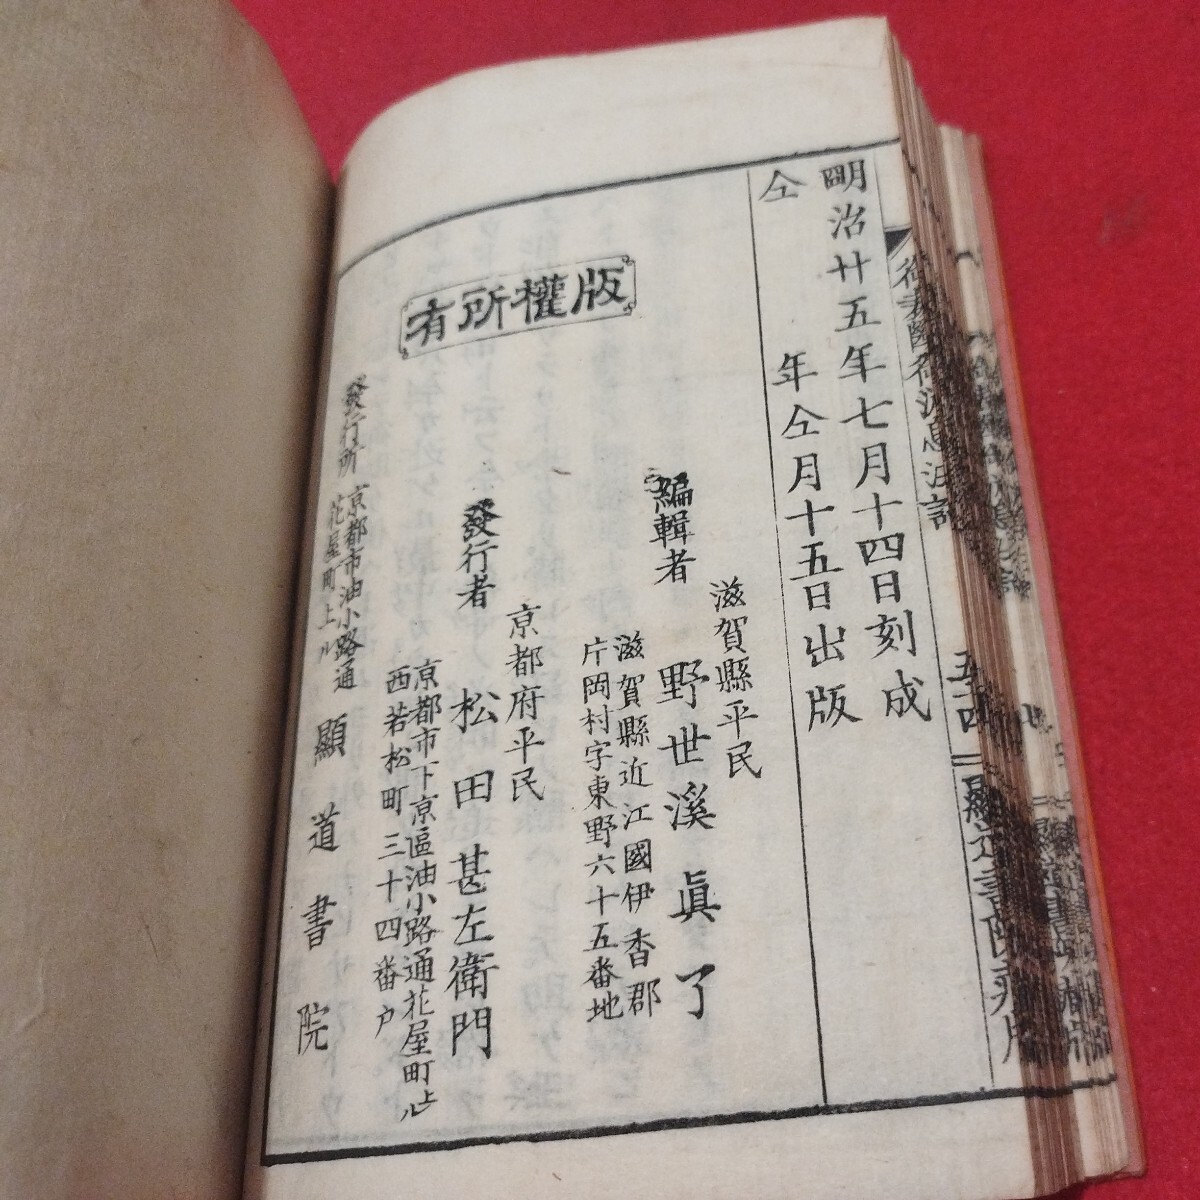 明治廿五年七月十四日刻成
仝　年仝月十五日出版
版權所有
滋賀縣平民
編輯者　野世溪眞了
滋賀縣近江國伊香郡
片岡村字東野六十五番地
京都府平民
發行者　松田甚左衛門
京都市下京區油小路通花屋町上ル
西若松町三十四番戸
發行所　京都市油小路通
花屋町上ル
顯道書院
五十四
顯道書院藏版